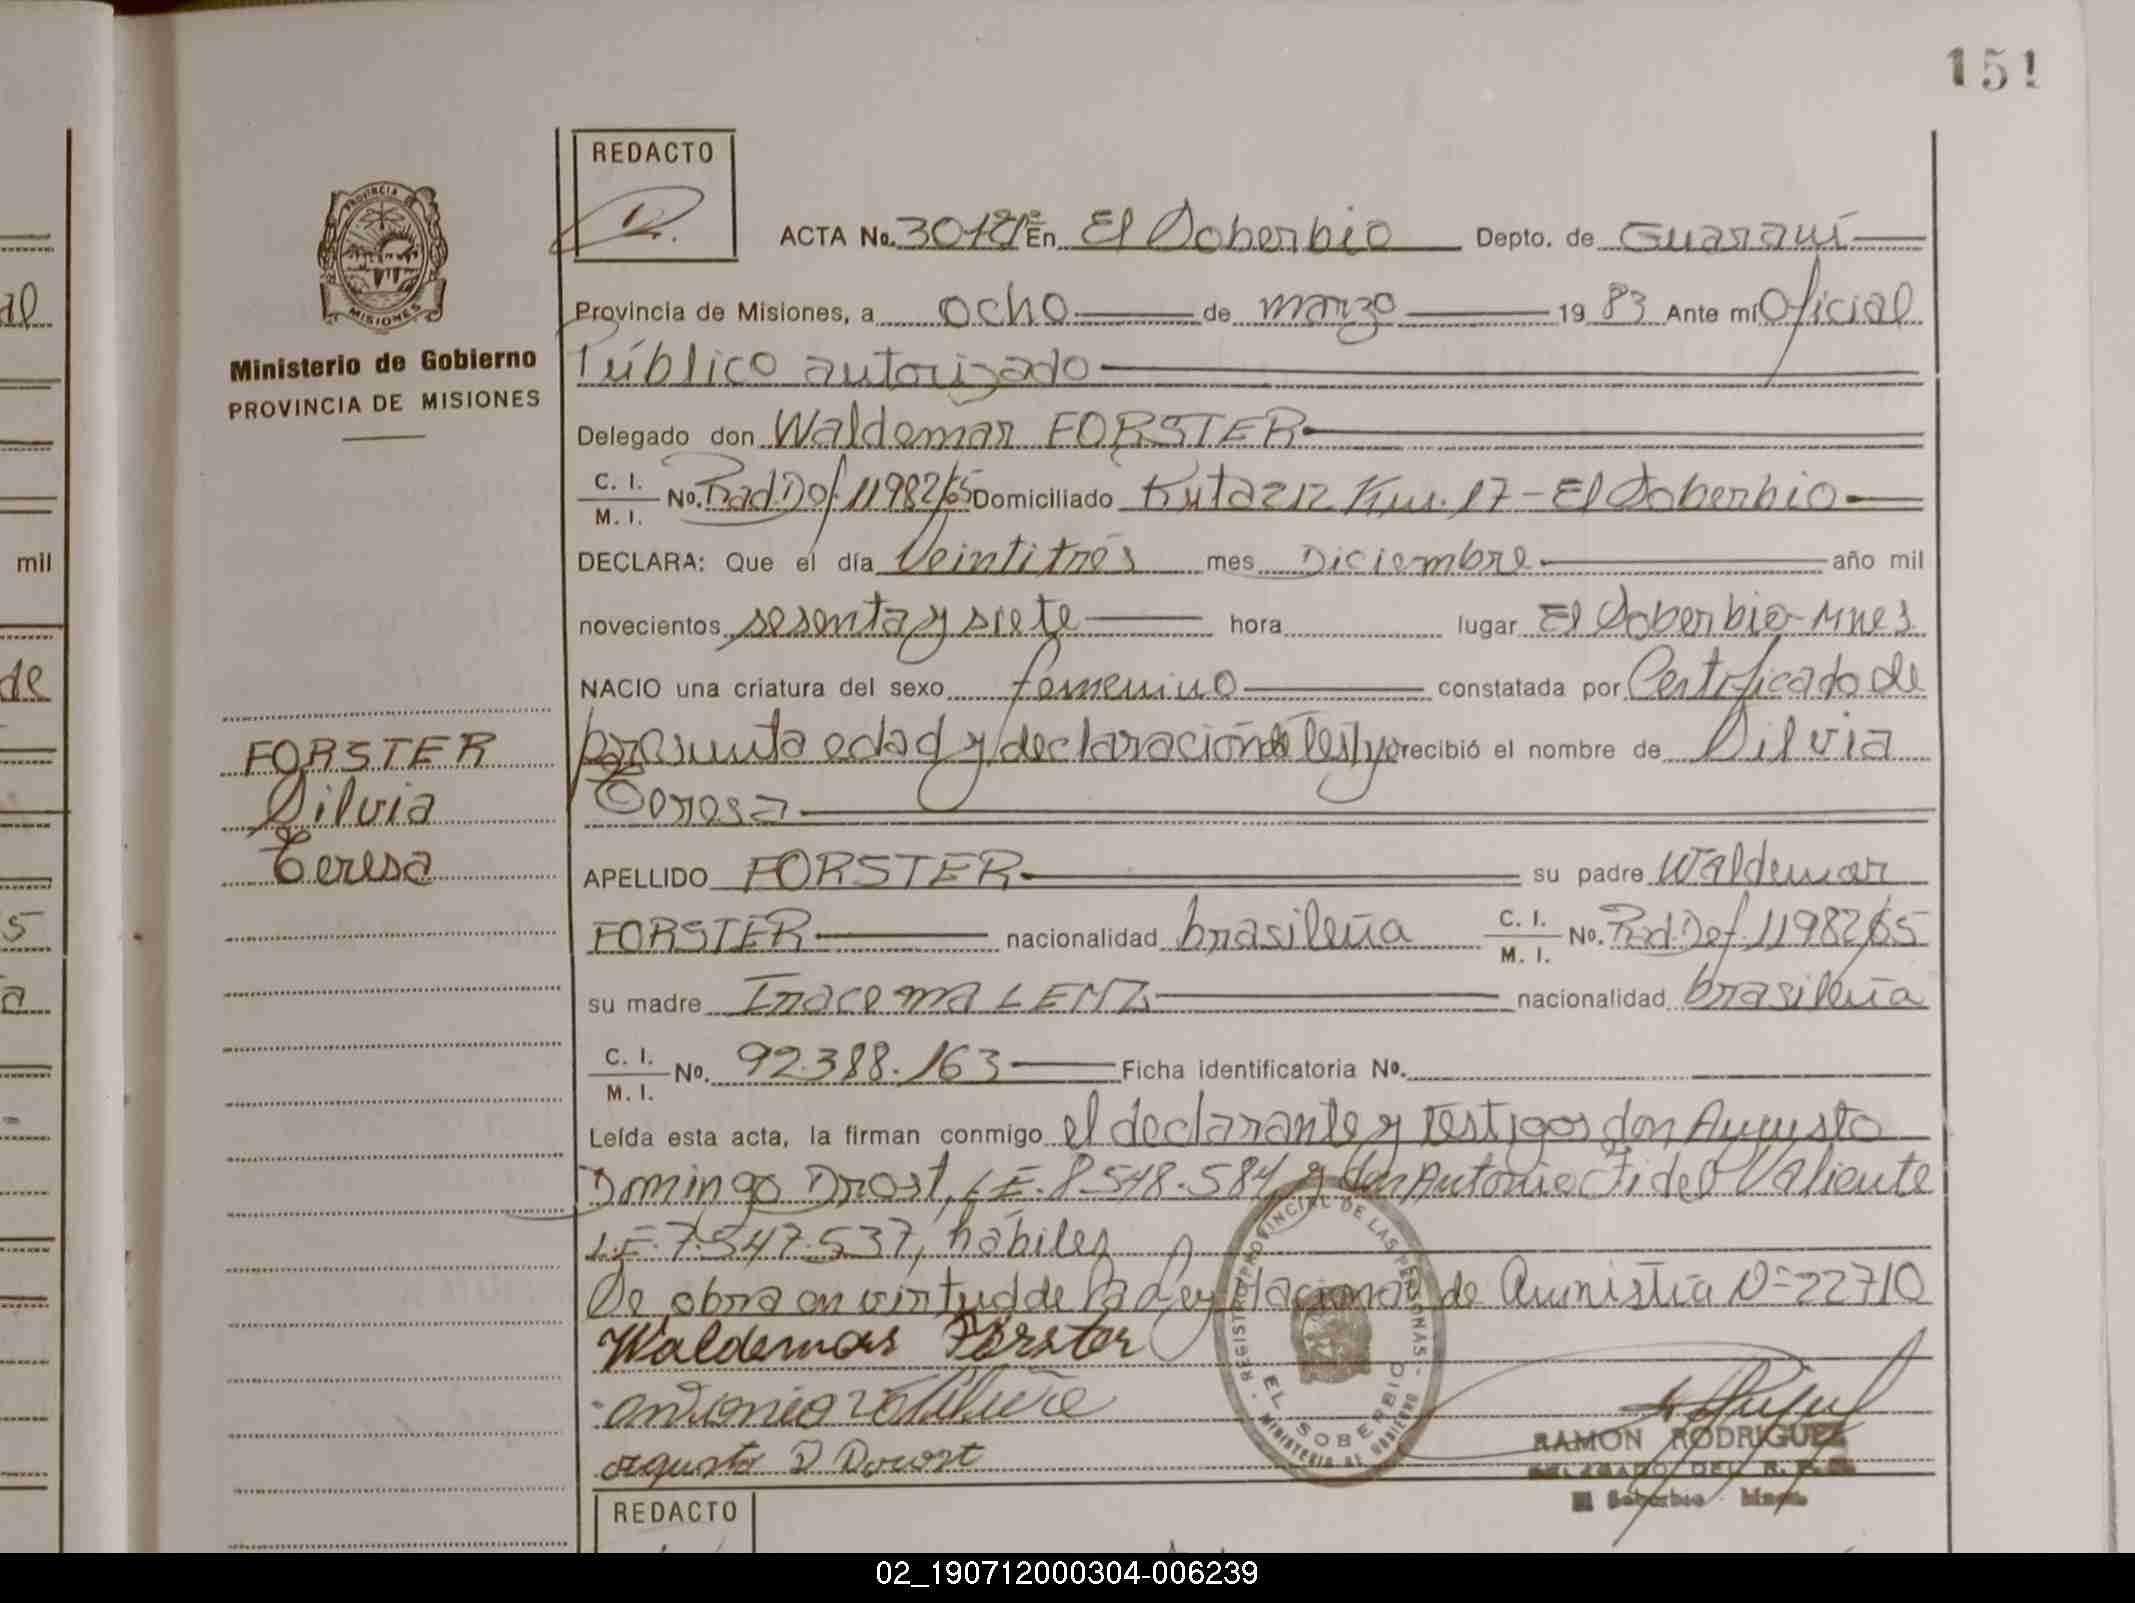 151
REDACTO
ACTA No. En El Soberbio Depto. de Guaraní
Provincia de Misiones, a ocho de marzo 1983 Ante mí Oficial
Público autorizado
Delegado don Waldemar FORSTER
C. I. M. I. No. Rad.Def. 11982/65 Domiciliado Ruta 212 Km. 17 - El Soberbio
DECLARA: Que el día Veintitrés mes Diciembre año mil
novecientos sesenta y siete hora lugar El Soberbio - Mnes
NACIO una criatura del sexo femenino constatada por Certificado de
presunta edad y declaración de Test. y recibió el nombre de Silvia
Teresa
APELLIDO FORSTER su padre Waldemar
FORSTER nacionalidad brasileña C. I. M. I. No. Rad.Def. 11982/65
su madre Iracema LENZ nacionalidad brasileña
C. I. M. I. No. 92.388.163 Ficha identificatoria No.
Leída esta acta, la firman conmigo el declarante y testigos don Augusto
Domingo Drost, L.E. 8.548.584 y don Antonio Fidel Valiente
L.E. 7.547.537, hábiles
Se obra en virtud de la Ley Nacional de Amnistía Nº 22710
Waldemar Förster
Antonio
agusto D Dorost
REGISTRO PROVINCIAL DE LAS PERSONAS
EL SOBERBIO
MINISTERIO DE GOBIERNO
RAMON RODRIGUEZ
DELEGADO DEL R. P.
El Soberbio - Mnes.
REDACTO
PROVINCIA DE
MISIONES
Ministerio de Gobierno
PROVINCIA DE MISIONES
FORSTER
Silvia
Teresa
al
mil
de
5
a
02_190712000304-006239